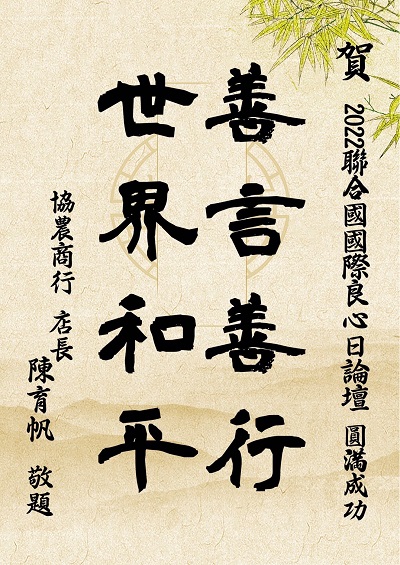 賀 2022聯合國國際良心日論壇 圓滿成功
善言善行
世界和平
協農商行 店長
陳育帆 敬題